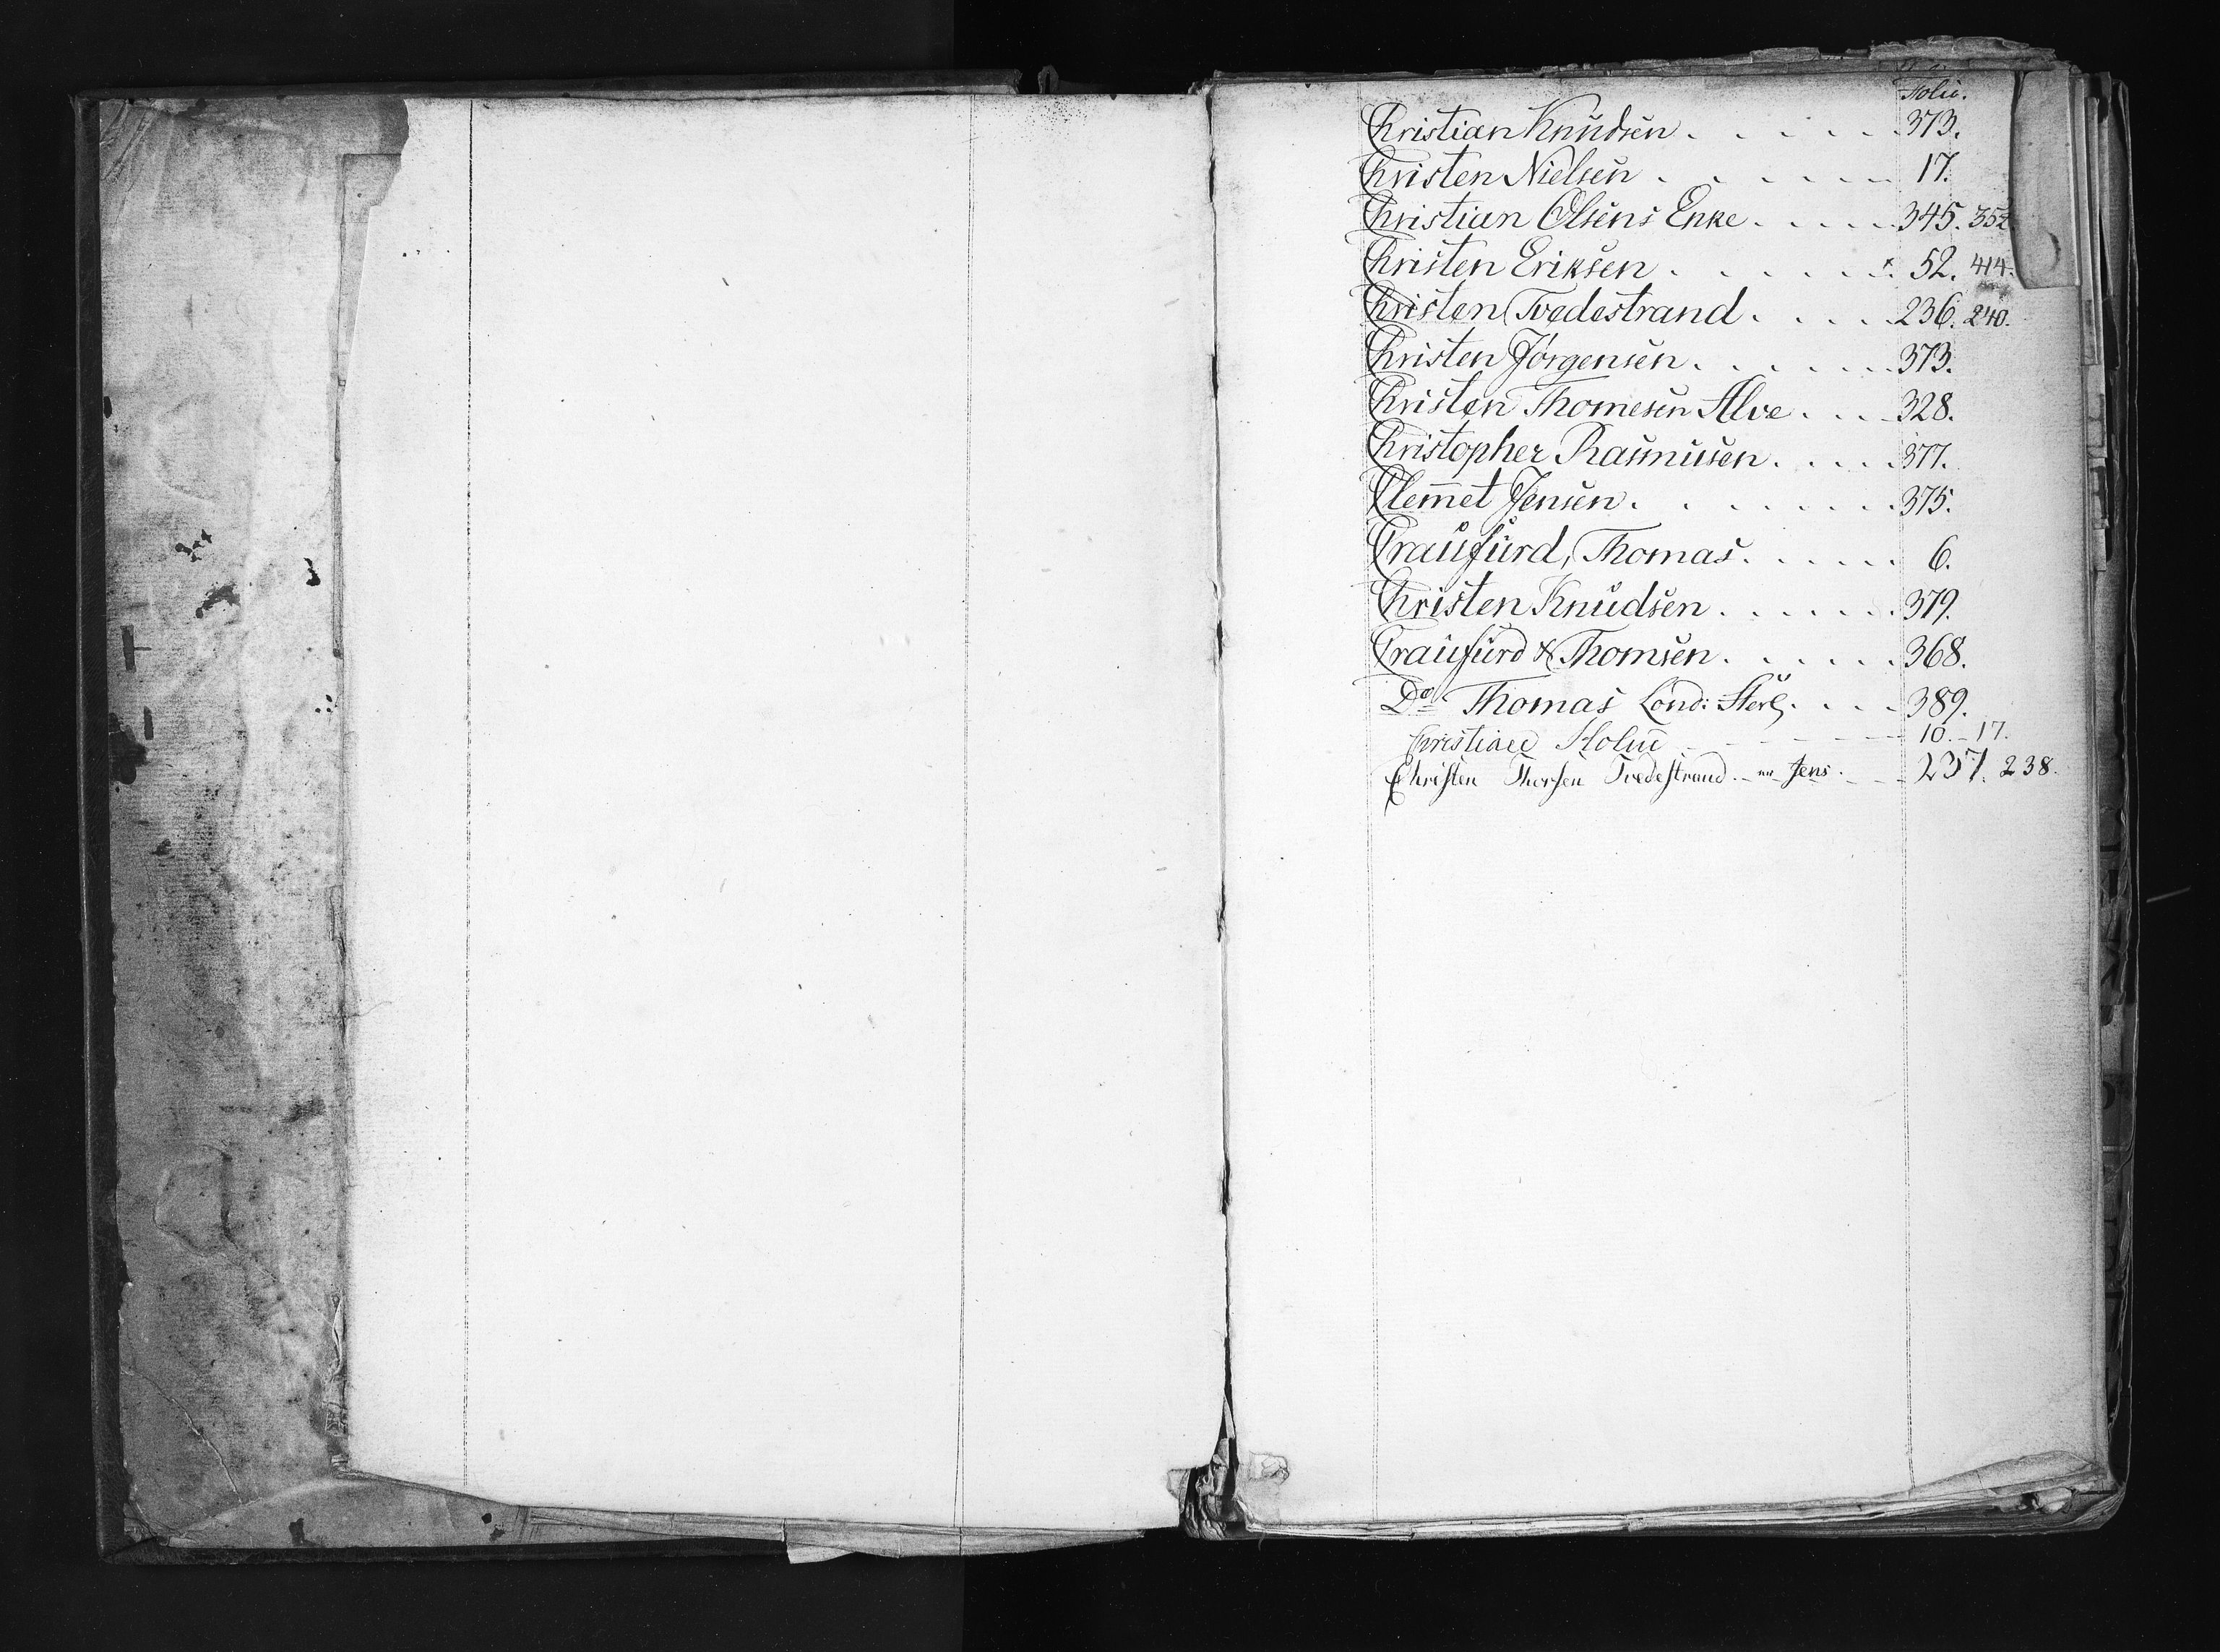 Folio.
Christian Knudsen . . . . . . 373.
Christen Nielsen . . . . . . 17.
Christian Olsens Enke . . . . 345. 352
Christen Eriksen . . . . . . × 52. 414.
Christen Tvedestrand . . . . 236. 240.
Christen Jörgensen . . . . . . 373.
Christen Thomesen Alve . . . 328.
Christopher Rasmusen . . . . 377.
Clem̅et Jensen . . . . . . . 375.
Craufurd, Thomas . . . . . . 6.
Christen Knudsen . . . . . . 379.
Craufurd & Thomsen . . . . . . 368.
Do Thomas Lond: Sterl. . . . 389.
Christian Holm - - - - - - 10. - 17.
Christen Thorsen Tvedestrand - Jens - - 237. 238.